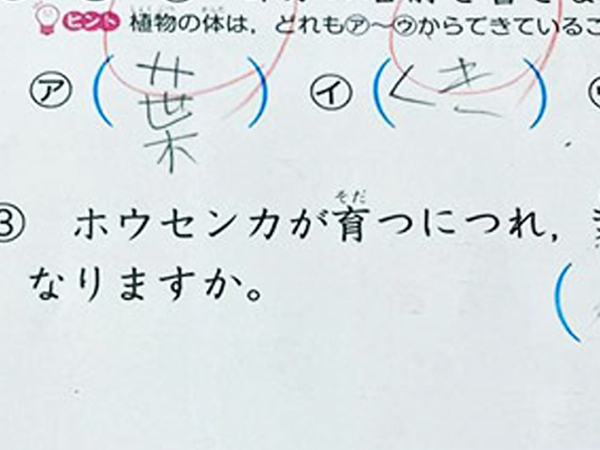 ヒント 植物の体は，どれもア～ウからできているこ
ア（葉） イ（くき）
③ ホウセンカが育つにつれ，
なりますか。